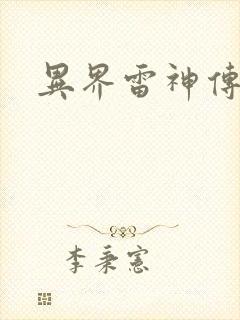 異界雷神傳
李秉憲